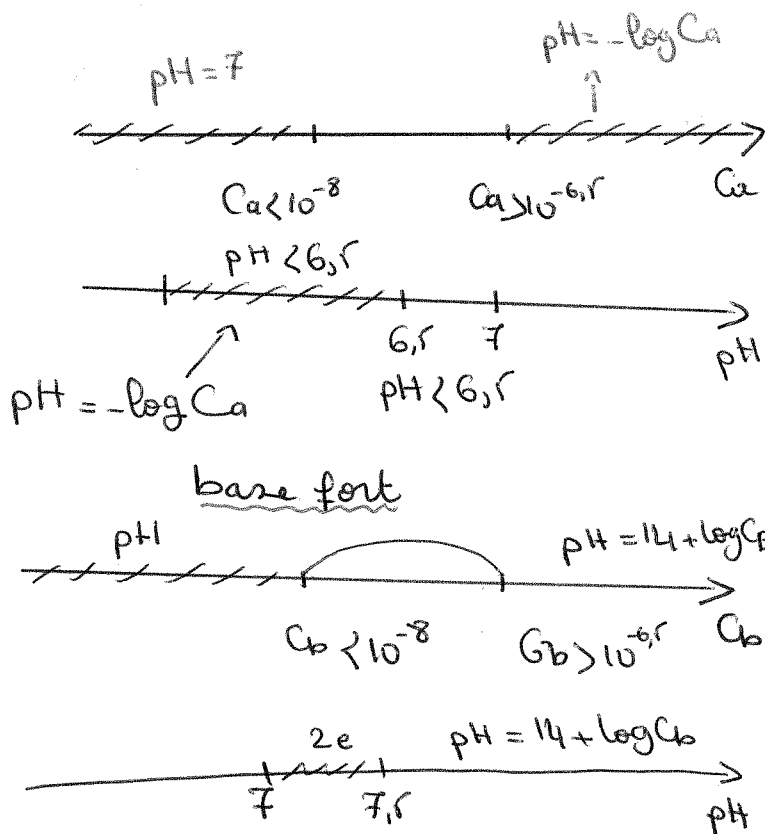 pH = 7
pH = -log Ca
Ca < 10⁻⁸
Ca > 10⁻⁶,⁵
Ca
pH < 6,5
6,5
7
pH
pH = -log Ca
pH < 6,5
base fort
pH
pH = 14 + log Cb
Cb < 10⁻⁸
Cb > 10⁻⁶,⁵
Cb
2e
pH = 14 + log Cb
7
7,5
pH